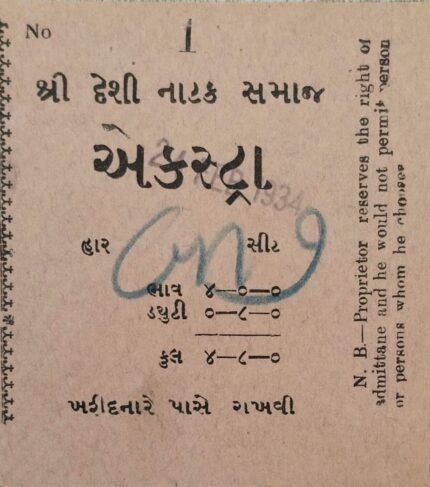 No 1
શ્રી દેશી નાટક સમાજ
એકસ્ટ્રા
FEB 1934
હાર સીટ
ભાવ ૪—૦—૦
ડ્યુટી ૦—૮—૦
કુલ ૪—૮—૦
ખરીદનારે પાસે રાખવી
N. B.—Proprietor reserves the right of
admittane and he would not permit person
or persons whom he chooses